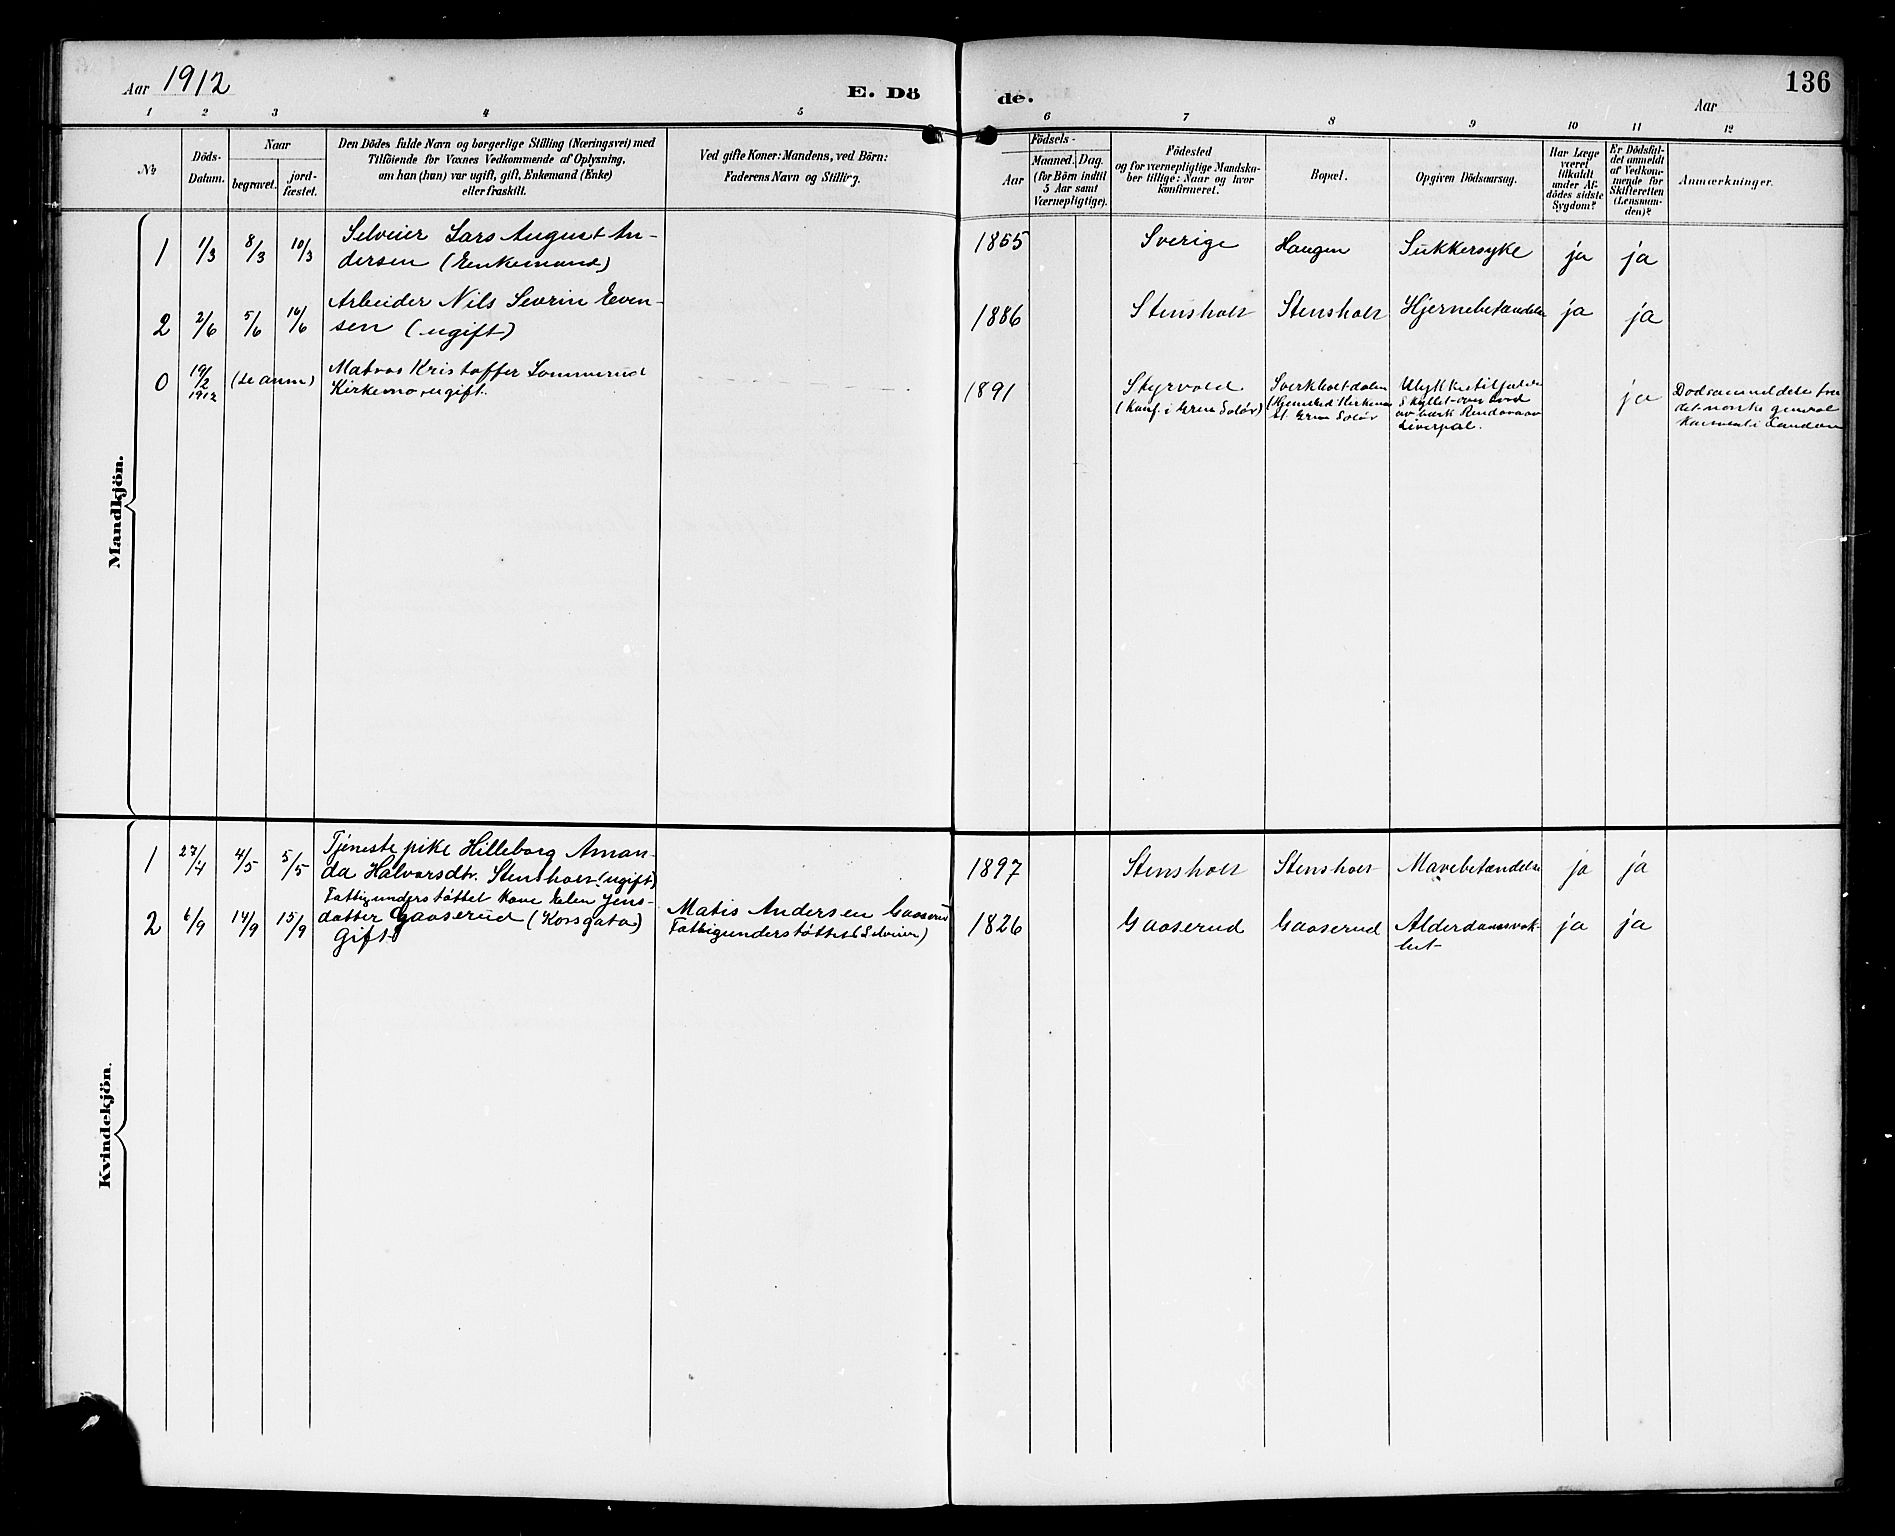 Aar 1912
E. Döde.
Aar
136
1 2 3 4 5 6 7 8 9 10 11 12
No
Döds-
Datum.
Naar
begravet.
jord-
fæstet.
Den Dödes fulde Navn og borgerlige Stilling (Næringsvei) med
Tilföiende for Voxnes Vedkommende af Oplysning,
om han (hun) var ugift, gift, Enkemand (Enke)
eller fraskilt.
Ved gifte Koner: Mandens, ved Börn:
Faderens Navn og Stilling.
Födsels-
Aar
Maaned. Dag.
(for Börn indtil
5 Aar samt
Værnepligtige).
Födested
og for værnepligtige Mandska-
ber tillige: Naar og hvor
konfirmeret.
Bopæl.
Opgiven Dödsaarsag.
Har Læge
været
tilkaldt
under Af-
dödes sidste
Sygdom?
Er Dödsfal-
det anmeldt
af Vedkom-
mende for
Skifteretten
(Lensman-
den)?
Anmærkninger.
Mandkjön.
1 1/3 8/3 10/3 Selveier Lars August An-
dersen (Enkemand)
1855 Sverige Haugen Sukkersyke ja ja
2 2/6 5/6 16/6 Arbeider Nils Sevrin Even-
sen (ugift)
1886 Stensholt Stensholt Hjernebetændelse ja ja
0 19/2 1912 (se anm) Matros Kristoffer Sommerud
Kirkemo, ugift.
1891 Skyrvold
(Konf. i Grue Solør)
Sverkholtdalen
(Hjemsted Kirkemo
st. Grue Solør
Ulykkestilfælde
Skyllet over bord
av bark
Liverpol.
ja
Dødsanmeldelse fra
det norske general
konsulat i London
Kvindekjön.
1 27/4 4/5 5/5 Tjenestepike Hilleborg Aman-
da Halvorsdtr. Stensholt (ugift)
1897 Stensholt Stensholt Mavebetændelse ja ja
2 6/9 14/9 15/9 Fattigunderstøttet Kone Helen Jens-
datter Gaaserud (Korsgata)
Gift
Matis Andersen Gaaserud
Fattigunderstøttet (Selveier)
1826 Gaaserud Gaaserud Alderdomssvak-
het ja ja